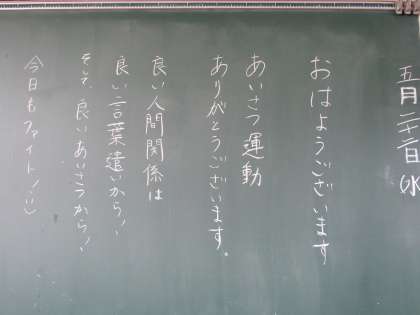 五月二十二日(水)
おはようございます
あいさつ運動
ありがとうございます。
良い人間関係は
良い言葉遣いから!
そして、良いあいさつから!
今日もファイト!!